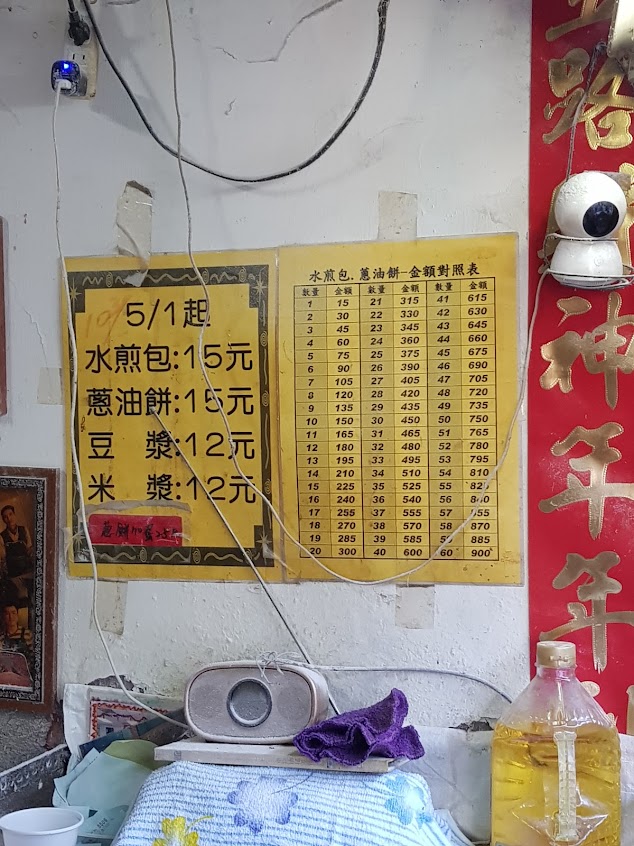 5/1起
水煎包:15元
蔥油餅:15元
豆 漿:12元
米 漿:12元
水煎包.蔥油餅-金額對照表
數量 金額 數量 金額 數量 金額
1 15 21 315 41 615
2 30 22 330 42 630
3 45 23 345 43 645
4 60 24 360 44 660
5 75 25 375 45 675
6 90 26 390 46 690
7 105 27 405 47 705
8 120 28 420 48 720
9 135 29 435 49 735
10 150 30 450 50 750
11 165 31 465 51 765
12 180 32 480 52 780
13 195 33 495 53 795
14 210 34 510 54 810
15 225 35 525 55 825
16 240 36 540 56 840
17 255 37 555 57 855
18 270 38 570 58 870
19 285 39 585 59 885
20 300 40 600 60 900
路
神
年
年